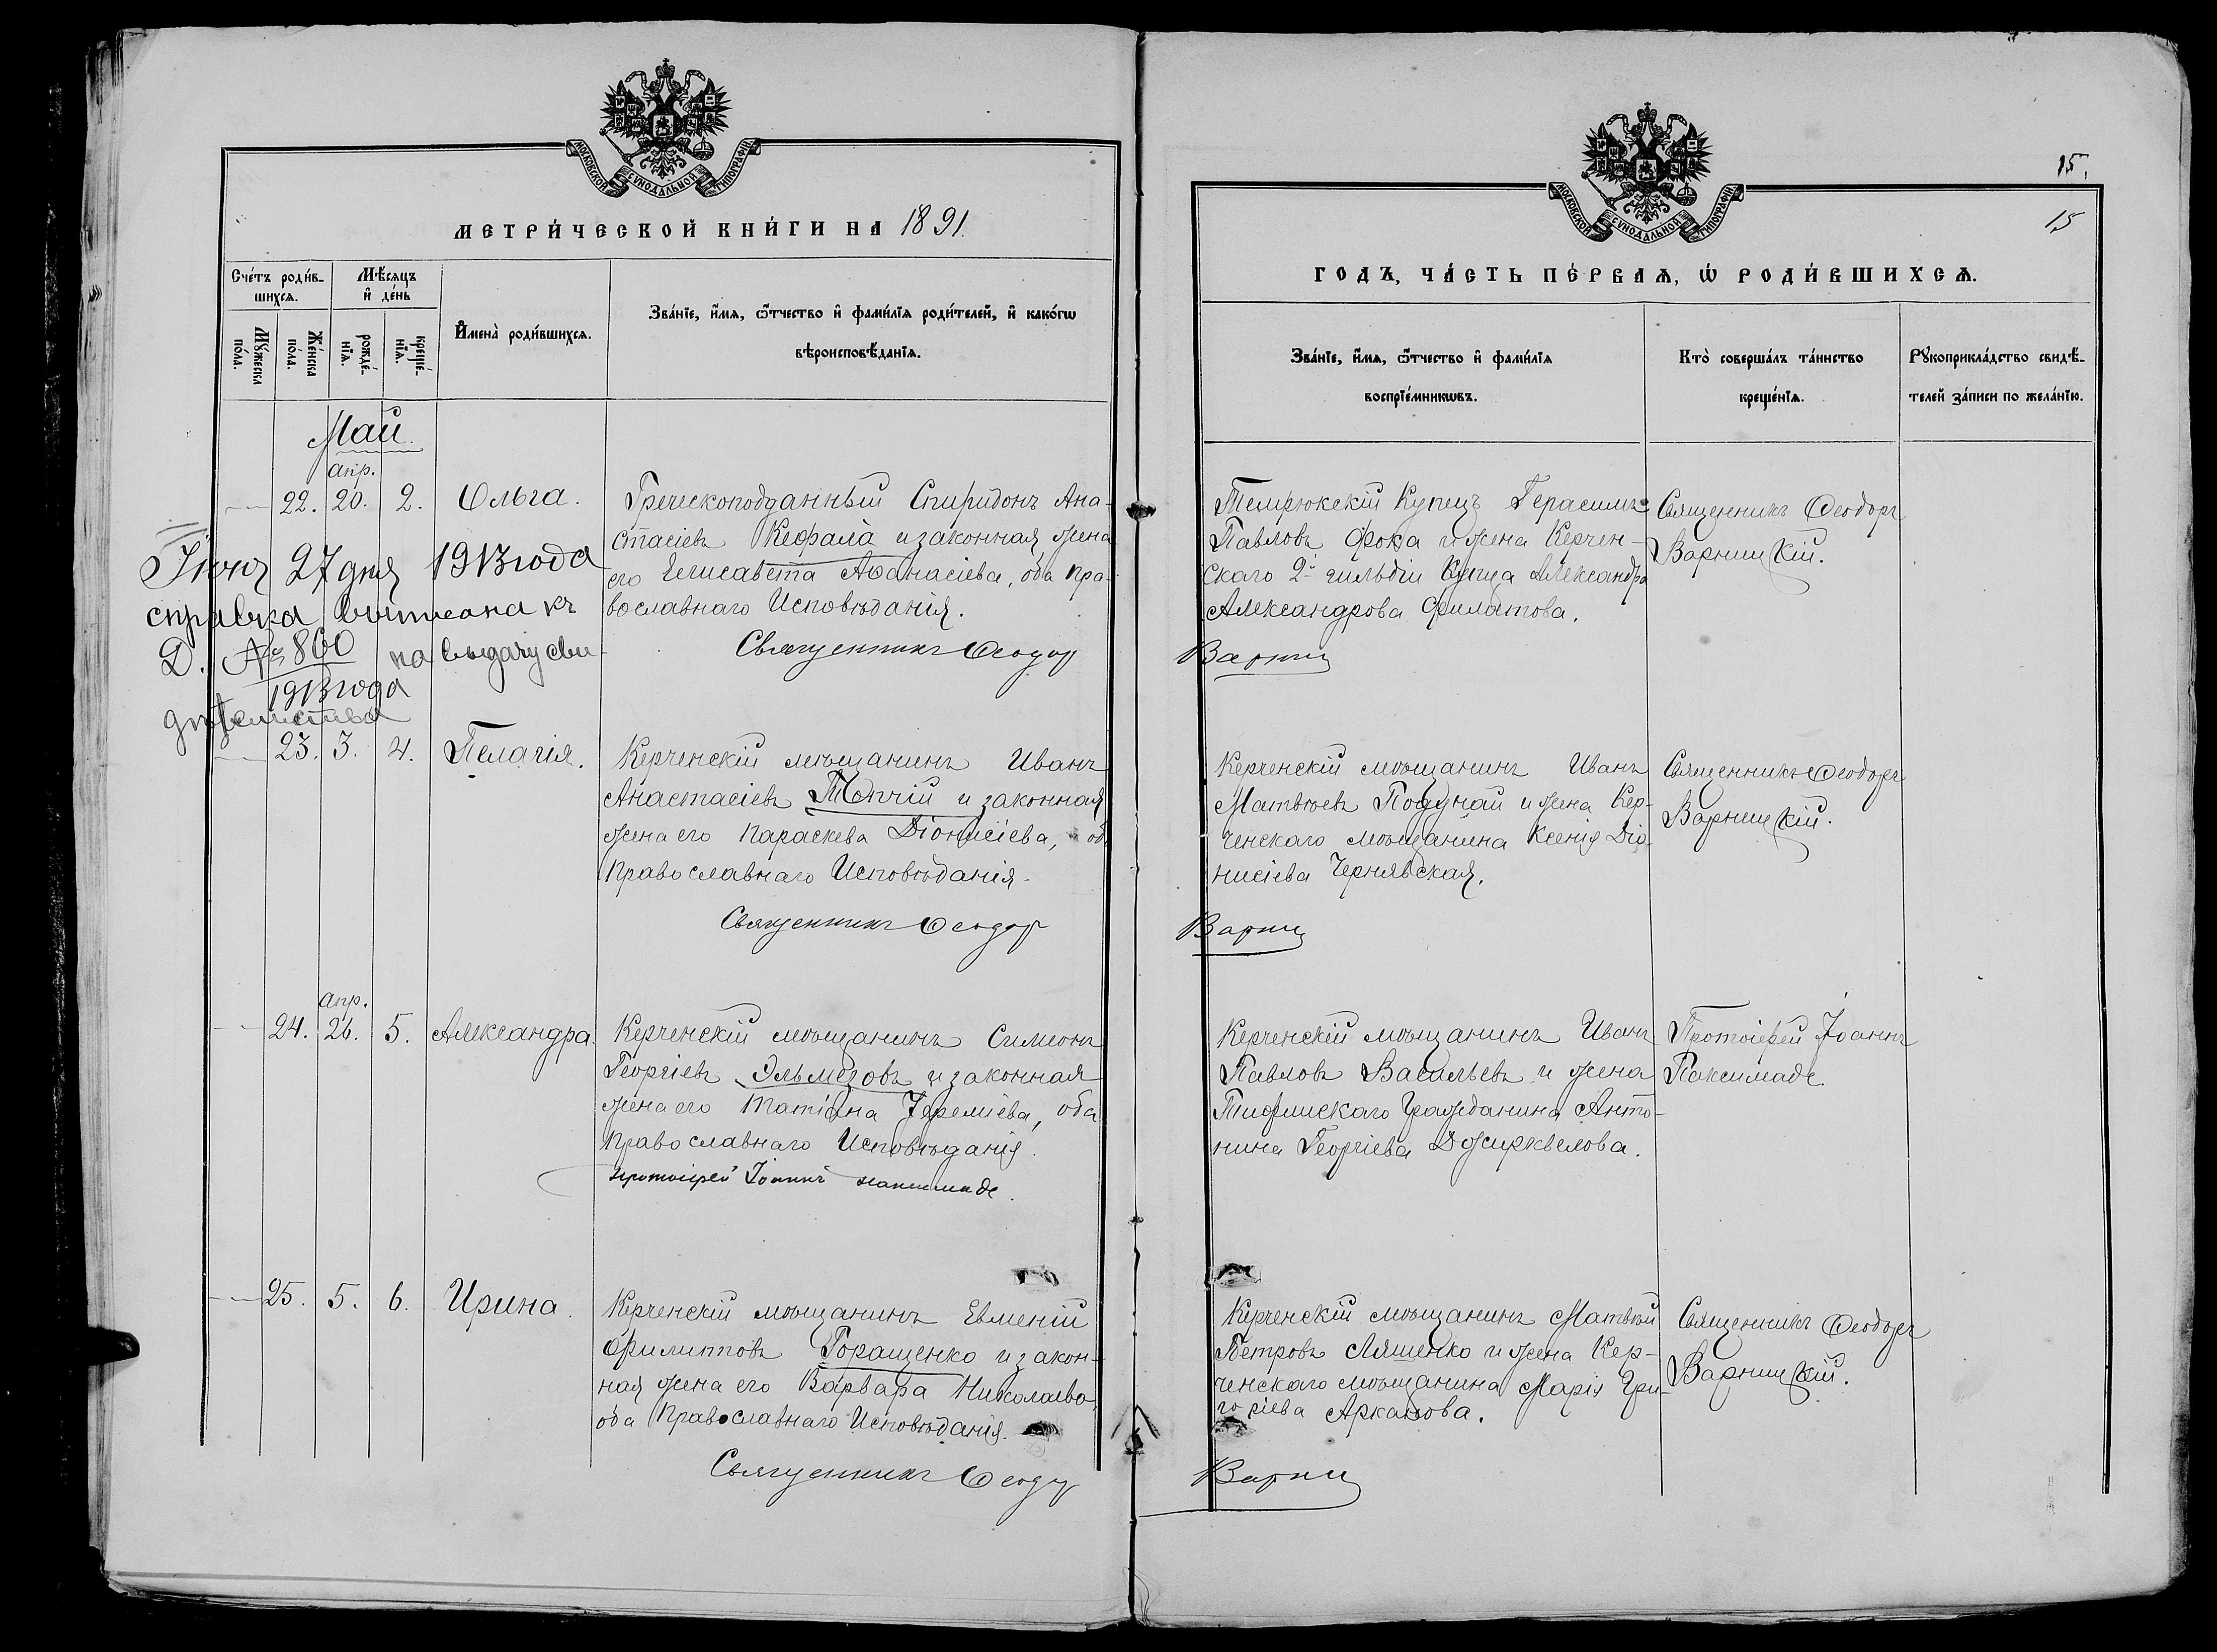 МОСКОВСКОЙ СѴНОДАЛЬНОЙ ТИПОГРАФІИ
МЕТРИ́ЧЕСКОЙ КНИ́ГИ НА 1891.
Сче́тъ роди́в-
шихсѧ.
Мѣ́сѧцъ
и҆ де́нь
Мꙋ́жеска
по́ла.
Же́нска
по́ла.
рожде́-
нїѧ.
креще́-
нїѧ.
И҆мена̀ роди́вшихсѧ.
Зва́нїе, и҆́мѧ, ѻ҆́тчество и҆ фами́лїѧ роди́телей, и҆ како́гѡ
вѣроисповѣ́данїѧ.
Май.
апр.
22. 20. 2. Ольга.
Греческоподданный Спиридонъ Ана-
стасіевъ Кефала и законная жена
его Елисавета Аѳанасіева, оба Пра-
вославнаго Исповѣданія.
Священникъ Ѳеодор
Іюня 27 дня 1913 года
справка выписана къ
Д. № 860 на выдачу сви-
1913 года
дѣтельства
23. 3. 4. Пелагія.
Керченскій мѣщанинъ Иванъ
Анастасіевъ Топчій и законная
жена его Параскева Діонисіева, об
Православнаго Исповѣданія.
Священникъ Ѳеодор
апр.
24. 26. 5. Александра.
Керченскій мѣщанинъ Симеонъ
Георгіевъ Эльмезовъ и законная
жена его Татіана Іереміева, оба
Православнаго Исповѣданія.
Протоіерей Іоаннъ Паксимаде.
25. 5. 6. Ирина.
Керченскій мѣщанинъ Евменій
Филиптовъ Горащенко и закон-
ная жена его Варвара Николаева,
оба Православнаго Исповѣданія.
Священникъ Ѳеодо
МОСКОВСКОЙ СѴНОДАЛЬНОЙ ТИПОГРАФІИ
15.
15
ГОДЪ, ЧА́СТЬ ПЕ́РВАѦ, Ѡ҆ РОДИ́ВШИХСѦ.
Зва́нїе, и҆́мѧ, ѻ҆́тчество и҆ фами́лїѧ
воспрїе́мникѡвъ.
Кто̀ соверша́лъ та́инство
креще́нїѧ.
Рꙋкоприкла́дство свидѣ́-
телей за́писи по жела́нїю.
Темрюкскій Купецъ Герасимъ
Павловъ Фока и жена Керчен-
скаго 2й гильдіи Купца Александра
Александрова Филатова.
Варниц
Священникъ Ѳеодоръ
Варницкій.
Керченскій мѣщанинъ Иванъ
Матвѣевъ Подунай и жена Кер-
ченскаго мѣщанина Ксенія Діо-
нисіева Чернявская.
Варниц
Священникъ Ѳеодоръ
Варницкій.
Керченскій мѣщанинъ Иванъ
Павловъ Васильевъ и жена
Тифлискаго Гражданина Анто-
нина Георгіева Джирквелова.
Протоіерей Іоаннъ
Паксимаде.
Керченскій мѣщанинъ Матвѣй
Петровъ Ляшенко и жена Кер-
ченскаго мѣщанина Марія Гри-
горіева Аркасова.
Варниц
Священникъ Ѳеодоръ
Варницкій.